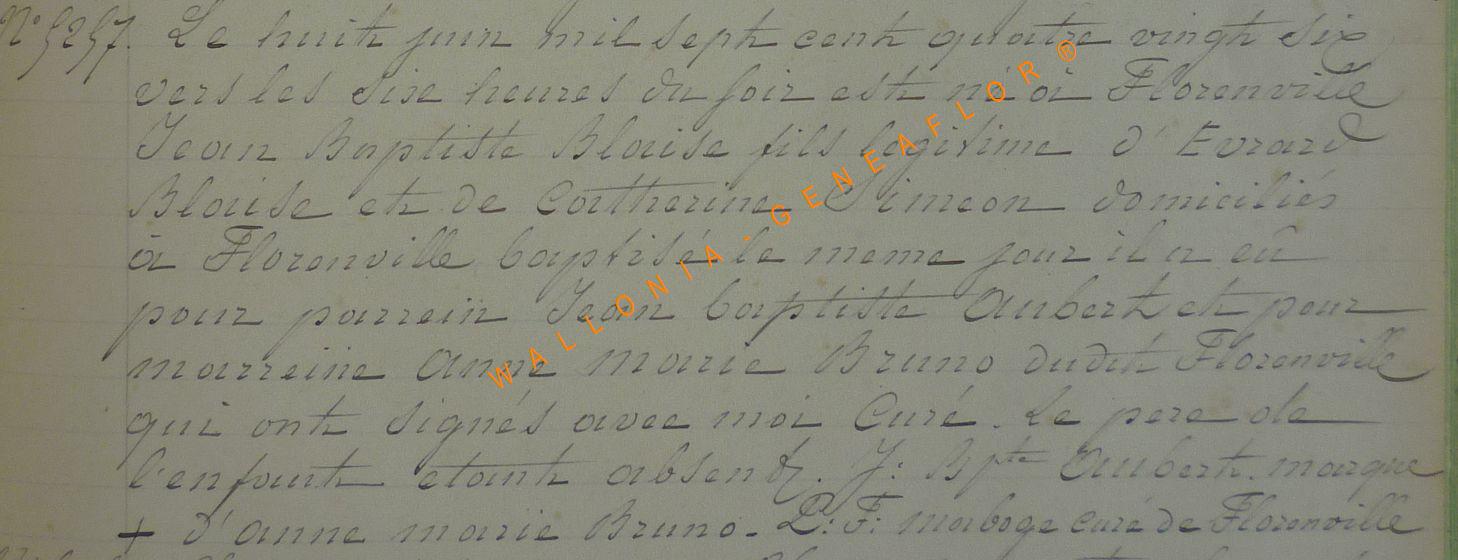 N° 5257. Le huit juin mil sept cent quatre vingt six
vers les six heures du soir est né à Florenville
Jean Baptiste Blaise fils légitime d'Evrard
Blaise et de Catherine Simeon domiciliés
à Florenville baptisé le meme jour il a eu
pour parrein Jean baptiste Aubert et pour
marreine Anne Marie Bruno dudit Florenville
qui ont signés avec moi Curé. Le pere de
l'enfant etant absent. J: Bpte Aubert. marque
+ d'anne marie Bruno. L: F: maboge curé de Florenville
WALLONIA-GENEAFLOR®